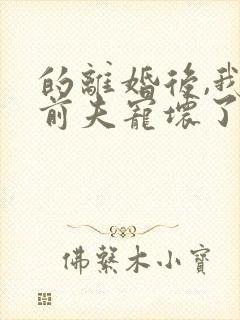 的離婚後,我
前夫寵壞了
佛繫木小寶